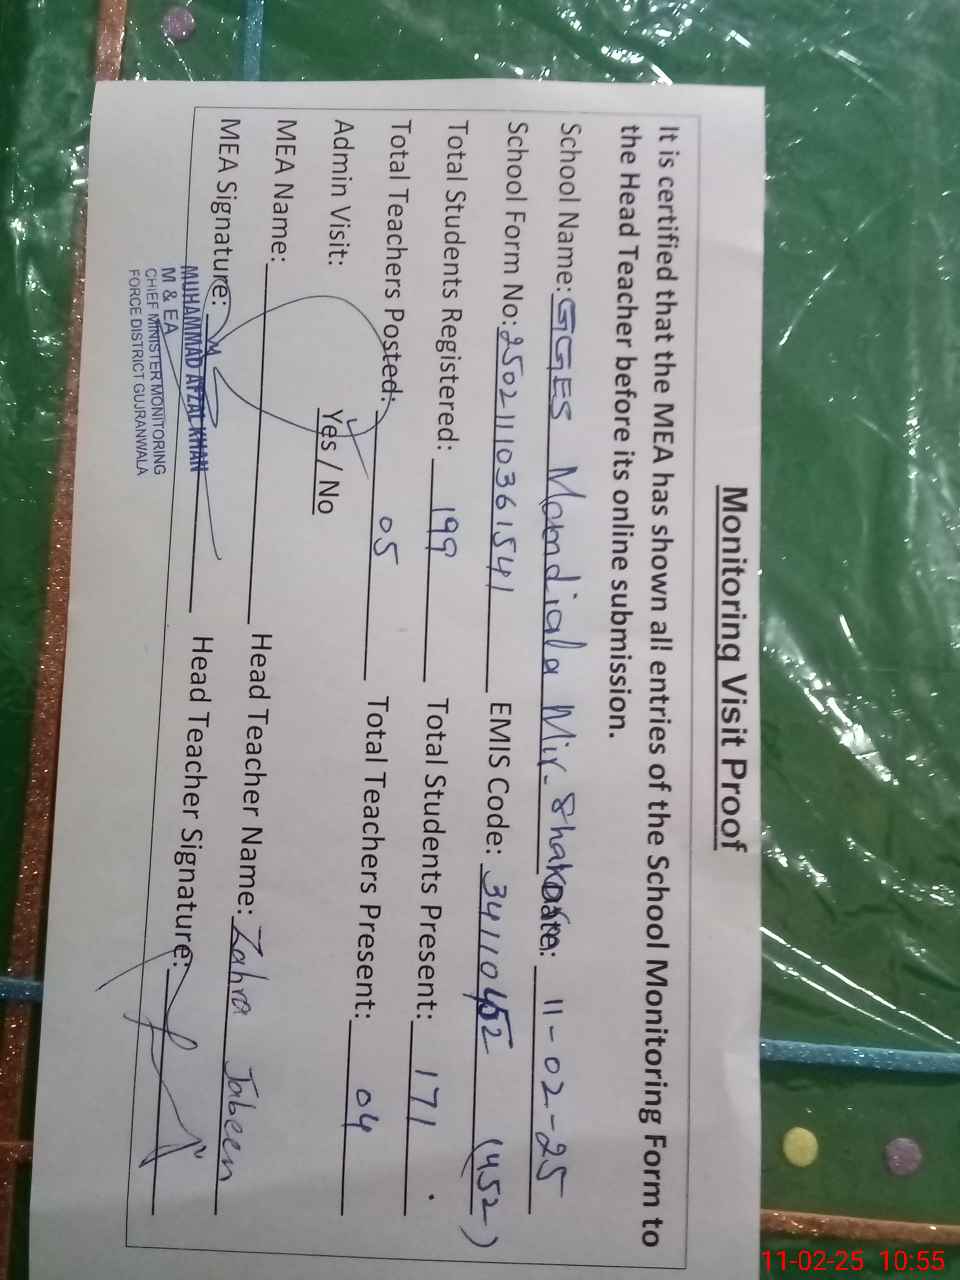 Monitoring Visit Proof
It is certified that the MEA has shown all entries of the School Monitoring Form to
the Head Teacher before its online submission.
School Name: GGES Mandiala Mir Shakaran Date: 11-02-25
School Form No: 25021110361541 EMIS Code: 34110452 (452)
Total Students Registered: 199 Total Students Present: 171
Total Teachers Posted: 05 Total Teachers Present: 04
Admin Visit: Yes / No
MEA Name: Head Teacher Name: Zahra Jabeen
MEA Signature: Head Teacher Signature:
MUHAMMAD AFZAL KHAN
M & EA
CHIEF MINISTER MONITORING
FORCE DISTRICT GUJRANWALA
11-02-25 10:55